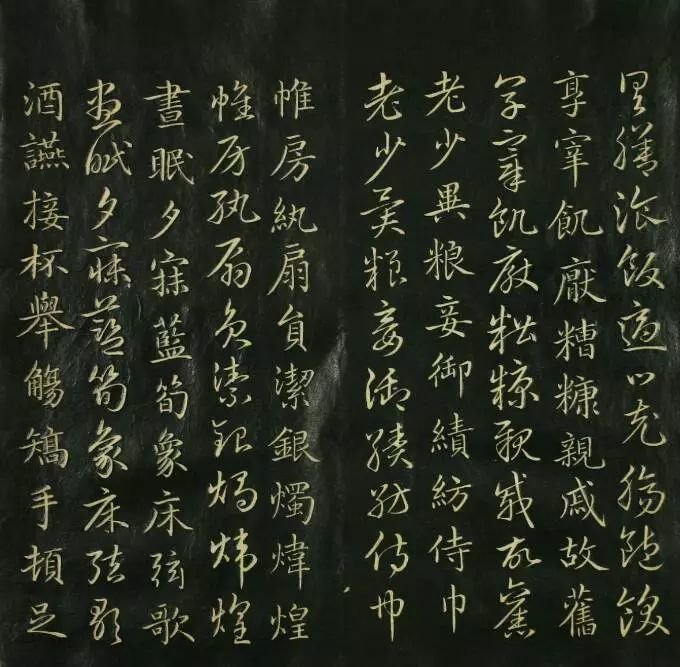 具膳飡飯適口充腸飽飫
享宰飢厭糟糠親戚故舊
享宰飢厭糟糠親戚故舊
老少異粮妾御績紡侍巾
老少異粮妾御績紡侍巾
帷房紈扇員潔銀燭煒煌
帷房紈扇員潔銀燭煒煌
晝眠夕寐藍筍象床弦歌
晝眠夕寐藍筍象床弦歌
酒讌接杯舉觴矯手頓足